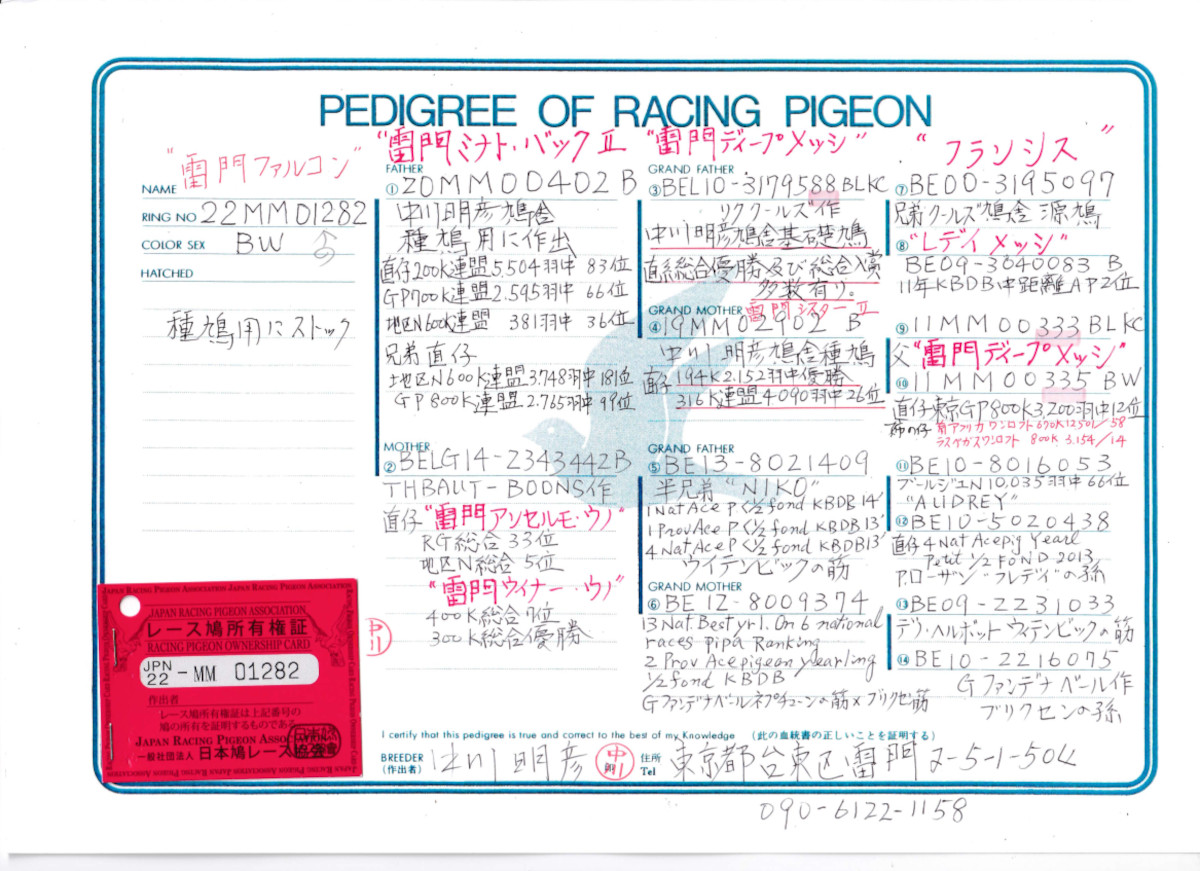 PEDIGREE OF RACING PIGEON
"雷門ファルコン"
NAME
RING NO 22MM01282
COLOR SEX BW ♂
HATCHED
種鳩用にストック
"雷門ミナト・バックⅡ
FATHER
① 20MM00402 B
中川明彦鳩舎
種鳩用に作出
直仔200K連盟5,504羽中 83位
GP700K連盟2.595羽中 66位
地区N600K連盟 381羽中 36位
兄弟直仔
地区N600K連盟3.748羽中181位
GP800K連盟2.765羽中99位
MOTHER
② BELG14-2343442B
THBAUT-BOONS作
直仔"雷門アンセルモ・ウノ"
RG総合33位
地区N総合5位
"雷門ウイナー・ウノ"
400K総合7位
300K総合優勝
"雷門ディープメッシ"
GRAND FATHER
③ BEL10-3179588 BLKC
リククールズ作
中川明彦鳩舎基礎鳩
直系総合優勝及び総合入賞
多数有り。
GRAND MOTHER 雷門シスターⅡ
④ 19MM02902 B
中川明彦鳩舎種鳩
直仔194K2.152羽中優勝
316K連盟4090羽中26位
GRAND FATHER
⑤ BE13-8021409
半兄弟"NIKO"
1 Nat Ace P <1/2 fond KBDB 14'
1 Prov Ace P <1/2 fond KBDB13'
4 Nat Ace P <1/2 fond KBDB13'
ウイテンビックの筋
GRAND MOTHER
⑥ BE 12-8009374
13 Nat Best yrl. On 6 national
races pipa Ranking
2 Prov Acepigeon yearling
1/2 fond KBDB
Gファンデナベールネプチューンの筋×ブリクセ筋
"フランシス"
⑦ BE00-3195097
兄弟クールズ鳩舎源鳩
⑧ "レディメッシ"
BE09-3040083 B
11年KBDB中距離AP2位
⑨ 11MM00333BLKC
父"雷門ディープメッシ"
⑩ 11MM00335 BW
直仔東京GP800K3,200羽中12位
姉の仔 南アフリカワンロフト670K1250L/58
ラスベガスワンロフト 800K 3.154/14
⑪ BE10-8016053
ブールジュN10,035羽中66位
"ALIDREY"
⑫ BE10-5020438
直仔4 Nat Acepig Yearl
Petit 1/2 FOND 2013
P.ローザン"フレディ"の孫
⑬ BE09-2231033
デゥ・ヘルボット ウィテンビックの筋
⑭ BE10-2216075
Gファンデナベール作
ブリクセンの孫
JAPAN RACING PIGEON ASSOCIATION
レース鳩所有権証
RACING PIGEON OWNERSHIP CARD
JPN 22 - MM 01282
作出者
レース鳩所有権証は上記番号の
鳩の所有を証明するものである
JAPAN RACING PIGEON ASSOCIATION
一般社団法人 日本鳩レース協会
I certify that this pedigree is true and correct to the best of my Knowledge (此の血統書の正しいことを証明する)
BREEDER (作出者) 中川明彦 住所 Tel 東京都台東区雷門2-5-1-504
090-6122-1158